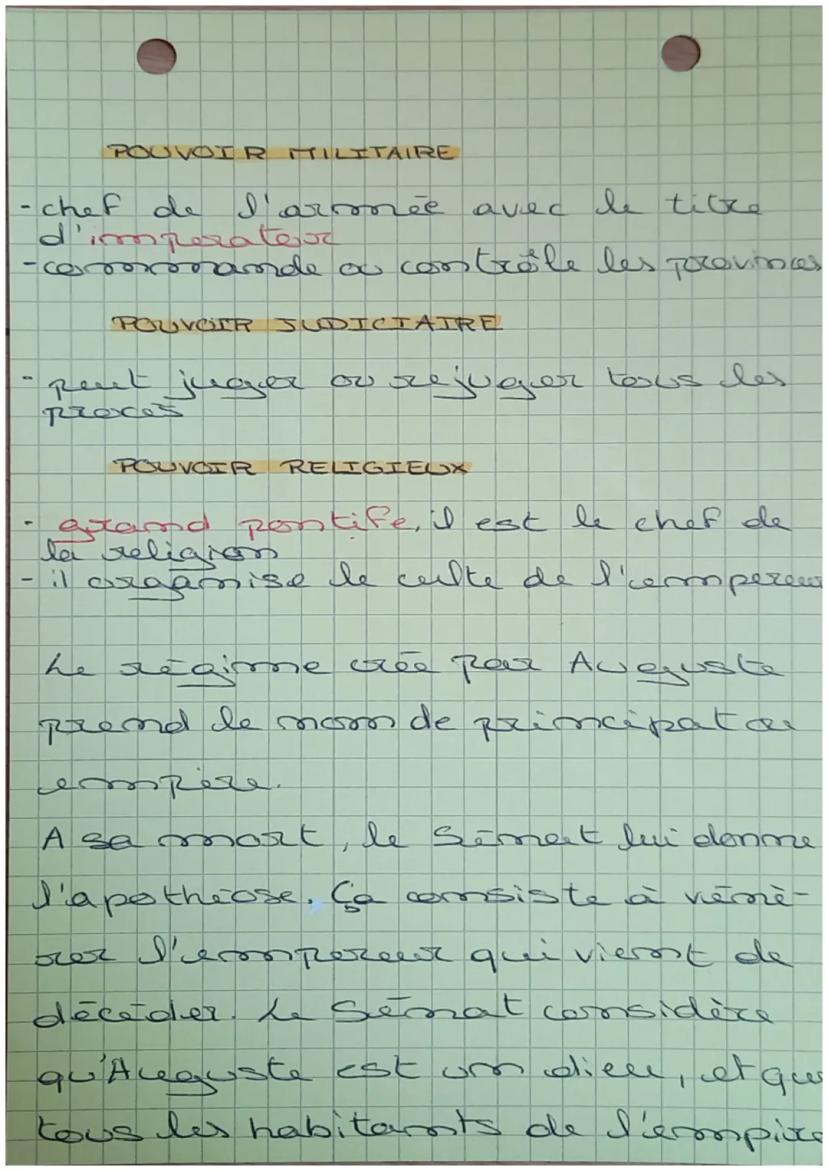 POUVOIR MILITAIRE
- chef de l'armée avec le titre
d'imperator
- commande ou contrôle les provinces
POUVOIR JUDICIAIRE
- peut juger ou rejuger tous les
procès
POUVOIR RELIGIEUX
- grand pontife, il est le chef de
la religion
- il organise le culte de l'empereur
Le régime crée par Auguste
prend le nom de principat ou
empire.
A sa mort, le Sénat lui donne
l'apothéose. Ça consiste à véné-
rer l'empereur qui vient de
décéder. Le Sénat considère
qu'Auguste est un dieu, et que
tous les habitants de l'empire